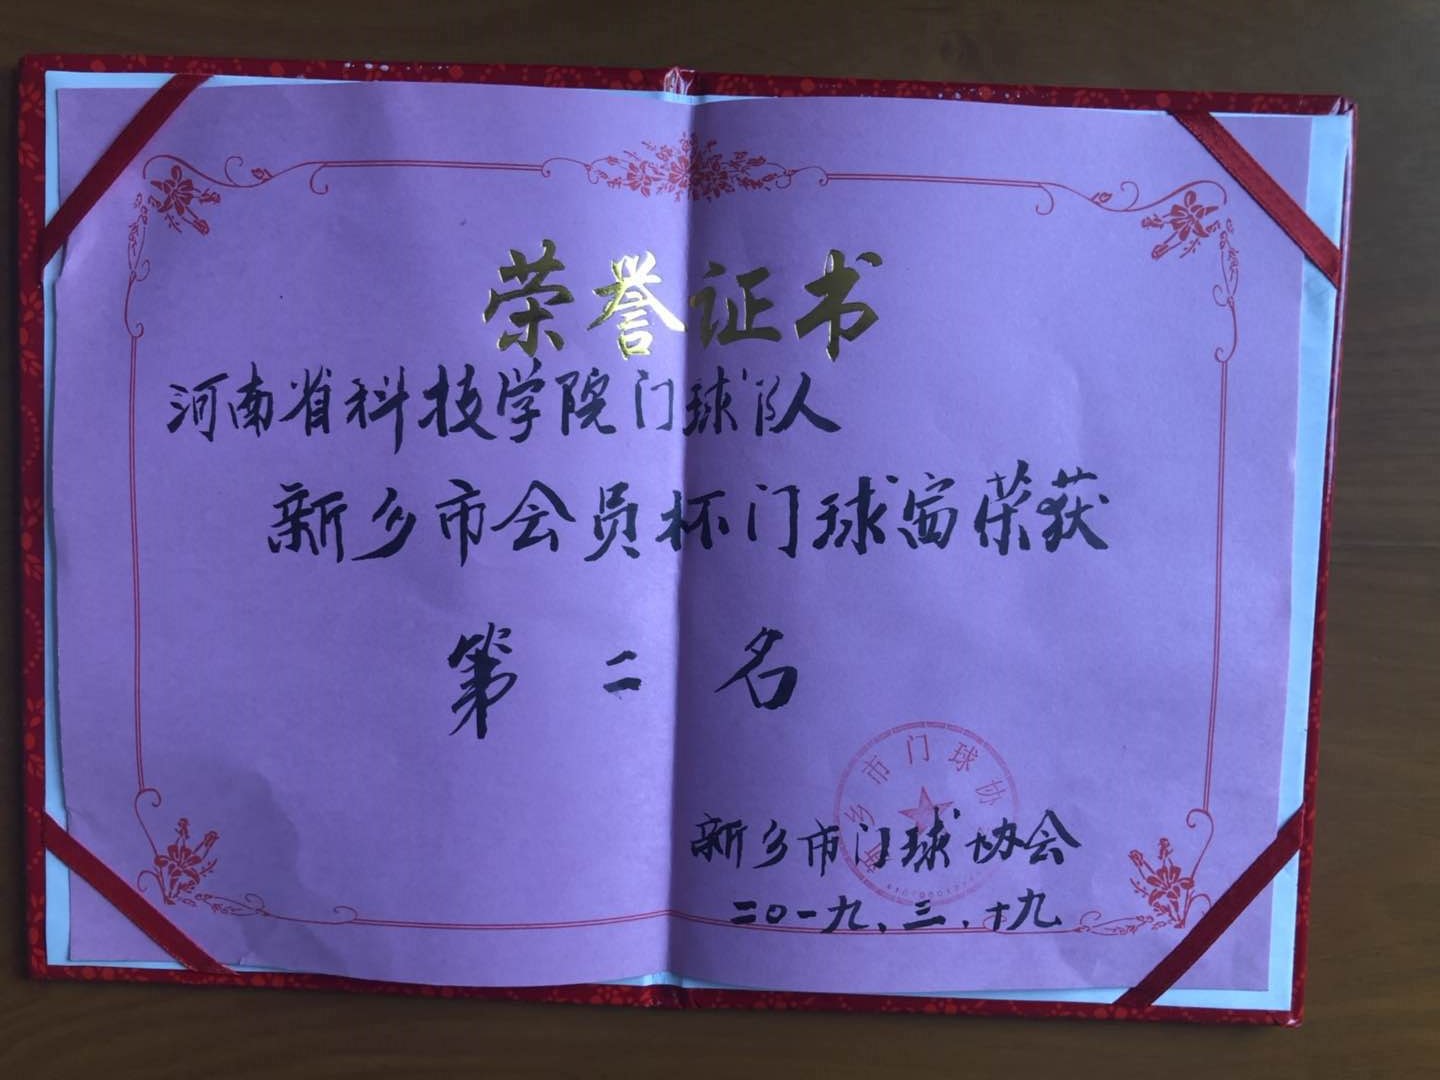 荣誉证书
河南省科技学院门球队
新乡市会员杯门球赛荣获
第二名
新乡市门球协会
新乡市门球协会
二〇一九、三、十九